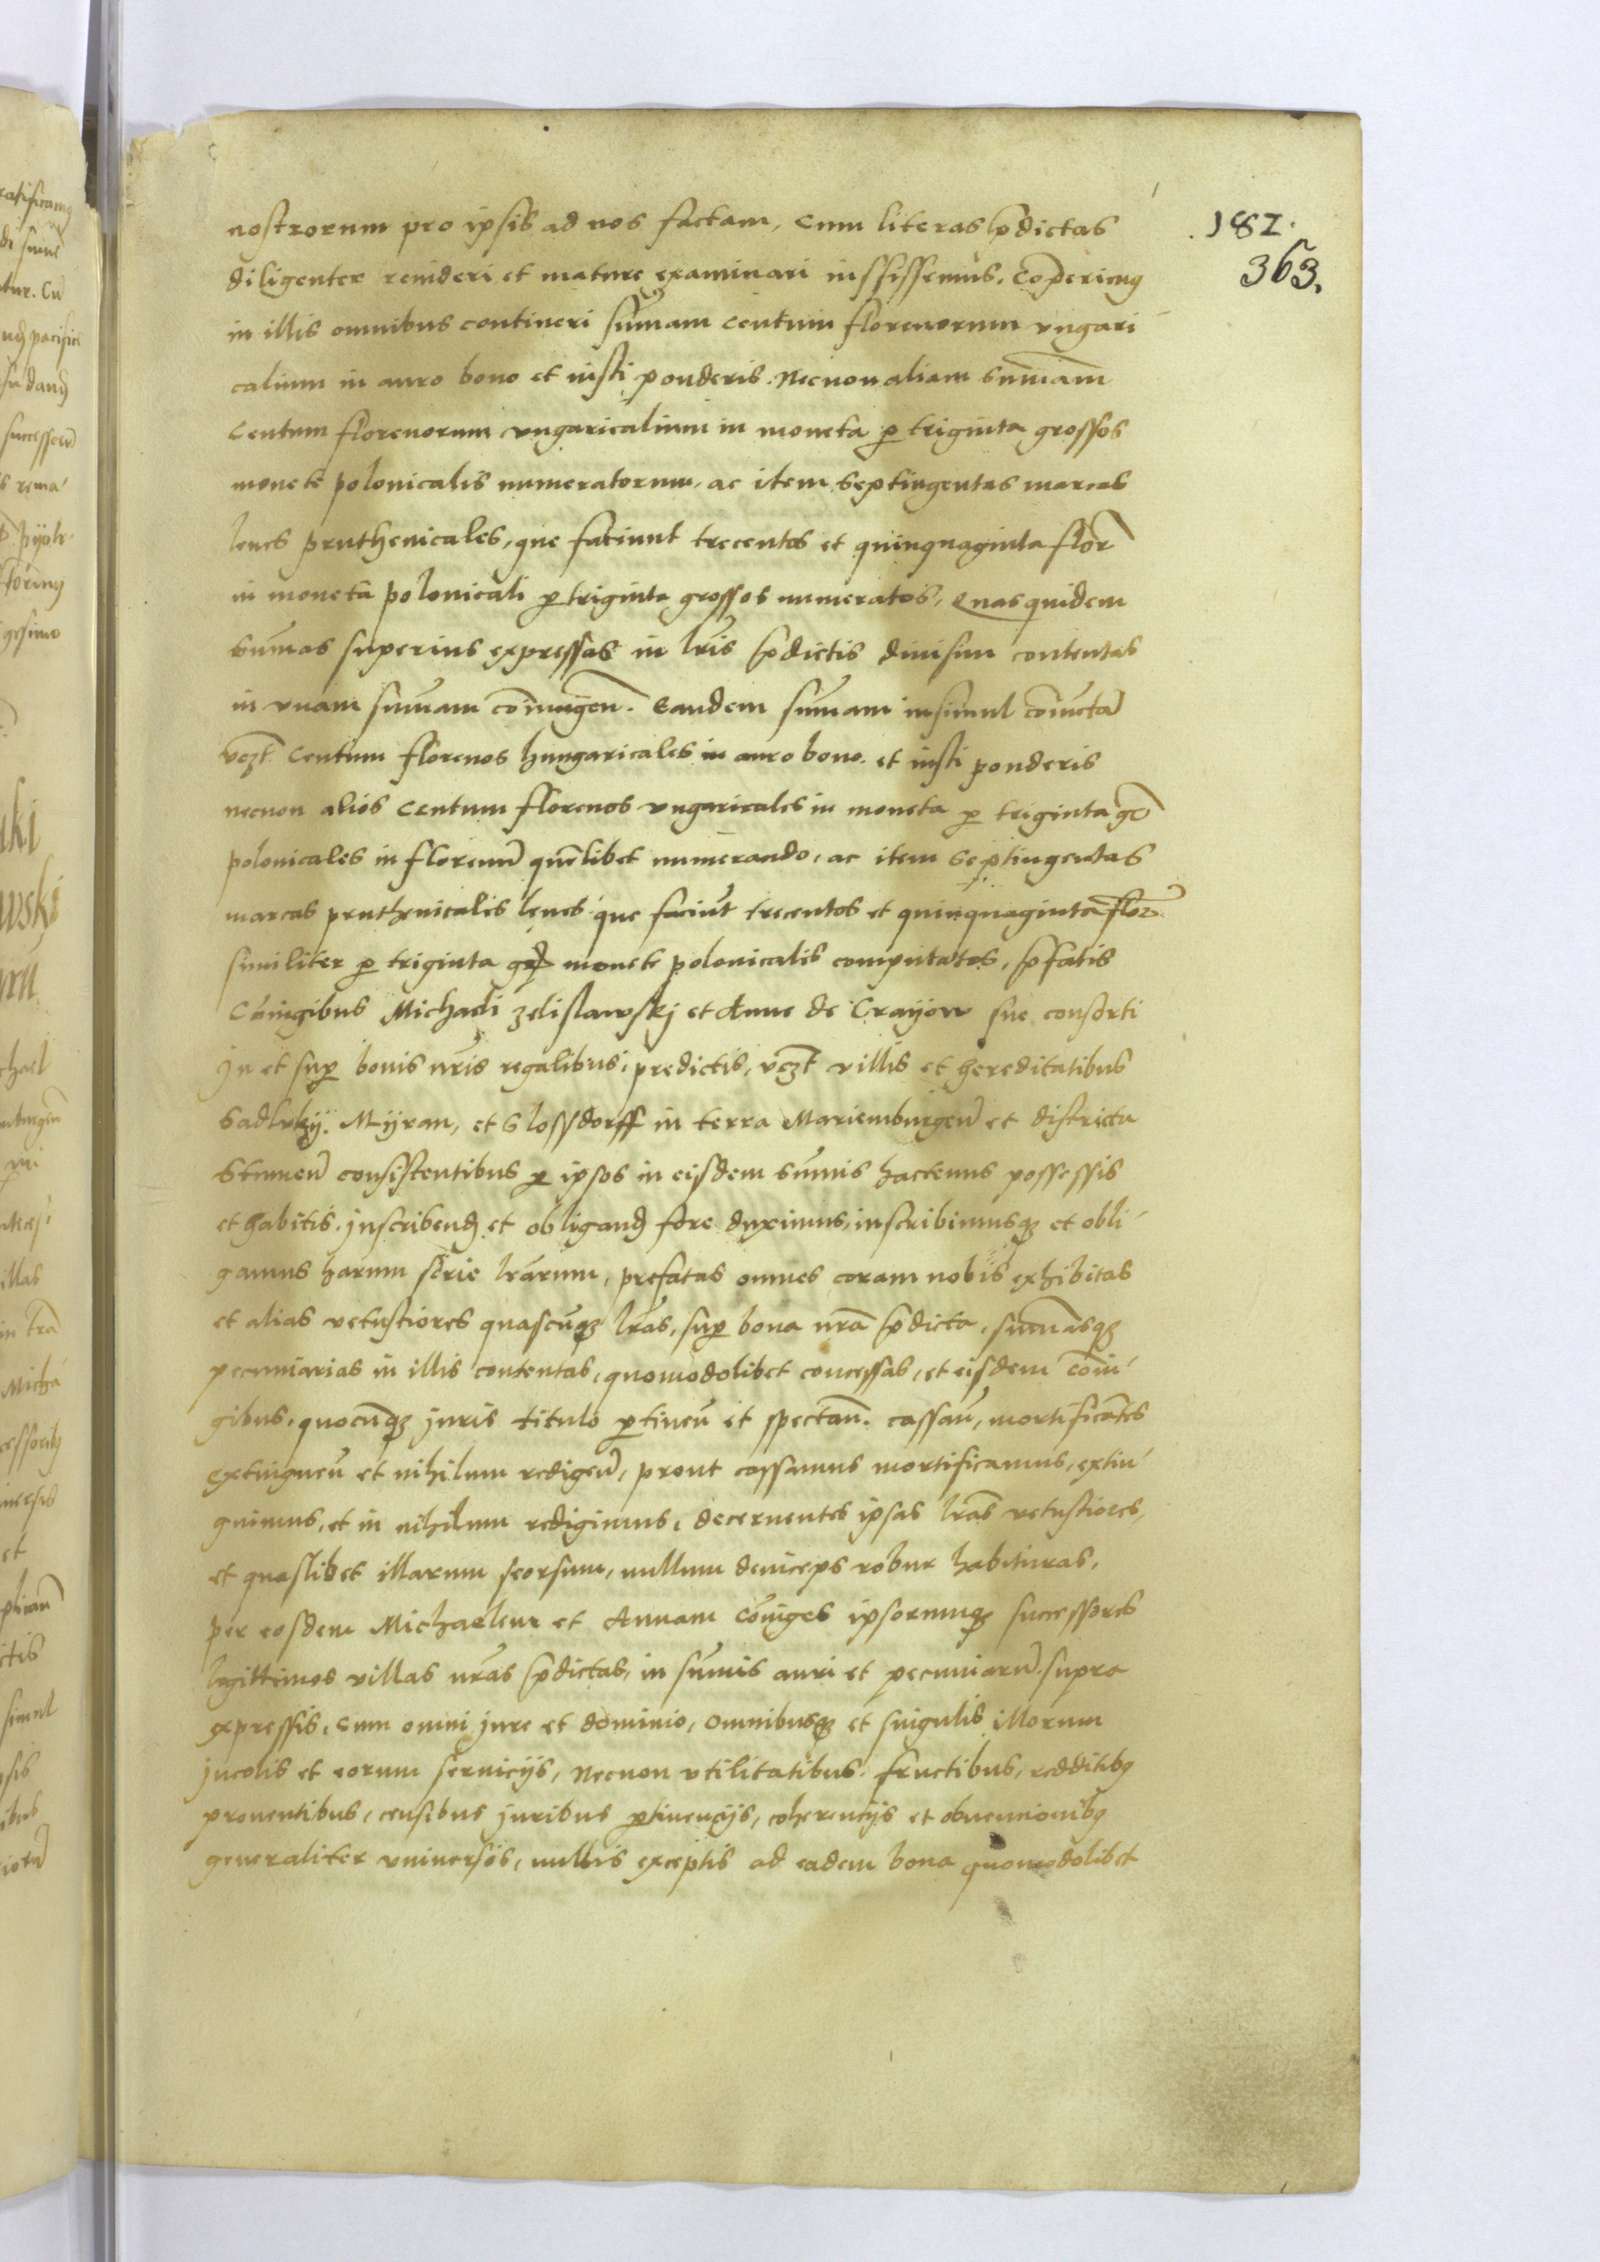 182.
363.
nostrorum pro ipsis ad nos factam, Cum literas p̄dictas
diligenter revideri et mature examinari iussissemus. Cōperimus
in illis omnibus contineri sum̄am centum florenorum vngari
calium in auro bono et iusti ponderis. Necnon aliam sum̄am
Centum florenorum vngaricalium in moneta ꝑ triginta grossos
monete polonicalis numeratorum, ac item septingentas marcas
leues pruthenicales, que faciunt trecentos et quinquaginta flor̄
in moneta polonicali ꝑ triginta grossos numeratos, Quas quidem
sum̄as superius expressas in lr̄is p̄dictis diuisim contentas
in vnam sum̄am cōiungen̄. Eandem sum̄am insimul cōiunctā
vcꝫt Centum florenos hungaricales in auro bono et iusti ponderis
necnon alios Centum florenos vngaricales in moneta ꝑ triginta gr̄
polonicales in florenū quēlibet numerando, ac item septingentas
marcas pruthenicalis leues que faciūt trecentos et quinquaginta flor̄
similiter ꝑ triginta gr̄ monete polonicalis computatos, p̄fatis
Cōiugibus Michaeli Zelislawskj et Anne de Crayow sue consorti
In et sup̱ bonis nr̄is regalibus predictis, vcꝫt villis et hereditatibus
Sadluky. Myran, et Slossdorff in terra Mariemburgen̄ et districtu
Stumen̄ consistentibus ꝑ ipsos in eisdem sum̄is hactenus possessis
et habitis. Inscribend et obligand fore duximus, inscribimusqꝫ et obli
gamus harum serie lr̄arum, prefatas omnes coram nobis exhibitas
et alias vetustiores quascūqꝫ lr̄as, sup̱ bona nr̄a p̄dicta, sum̄asqꝫ
pecuniarias in illis contentas, quomodolibet concessas, et eisdem cōiu
gibus, quocūqꝫ iuris titulo ꝑtineñ et spectañ. cassañ, mortificantes
extingueñ et nihilum redigeñ, prout cassamus mortificamus, extin
guimus, et in nihilum redigimus, decernentes ipsas lr̄as vetustiores,
et quaslibet illarum seorsum, nullum deinceps robur habituras,
per eosdem Michaelem et Annam Cōiuges ipsorumqꝫ successores
legittimos villas nr̄as p̄dictas, in sum̄is auri et pecuniarū supra
expressis, cum omni jure et dominio, omnibusqꝫ et singulis illorum
jncolis et eorum seruicijs, Necnon vtilitatibus. fructibus, redditibꝫ
prouentibus, censibus juribus ꝑtinencijs, coherencijs et obuencionibꝫ
generaliter vniuersis, nullis exceptis ad eadem bona quomodolibet